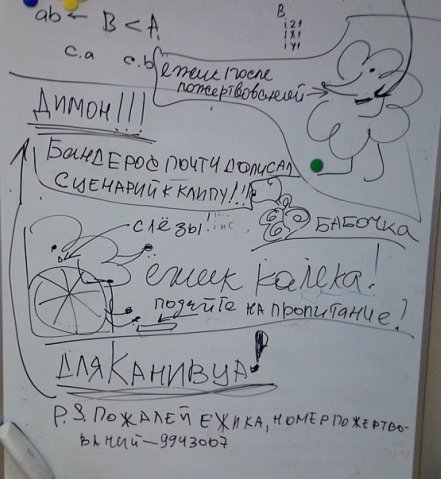 ab ← B < A
B
121
181
141
c.a c.b
ежик после
пожертвований
ДИМОН!!!
БАНДЕРОС ПОЧТИ ДОПИСАЛ
СЦЕНАРИЙ К КЛИПУ!!!
СЛЁЗЫ!
БАБОЧКА
ежик калека!
ПОДАЙТЕ НА ПРОПИТАНИЕ!
ДЛЯ КАНИВУА!
P.S. ПОЖАЛЕЙ ЕЖИКА, НОМЕР ПОЖЕРТВО-
ВАНИЙ — 9943007